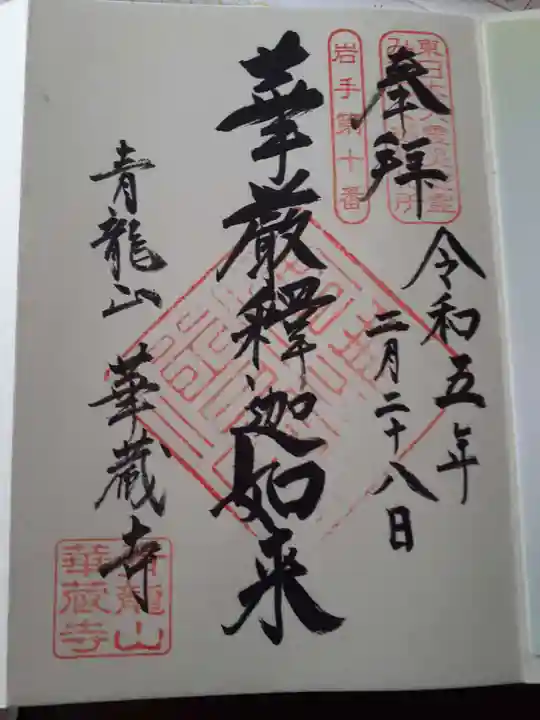 奉拝
岩手第十番
令和五年
二月二十八日
華厳釋迦如来
青龍山 華蔵寺
青龍山
華蔵寺